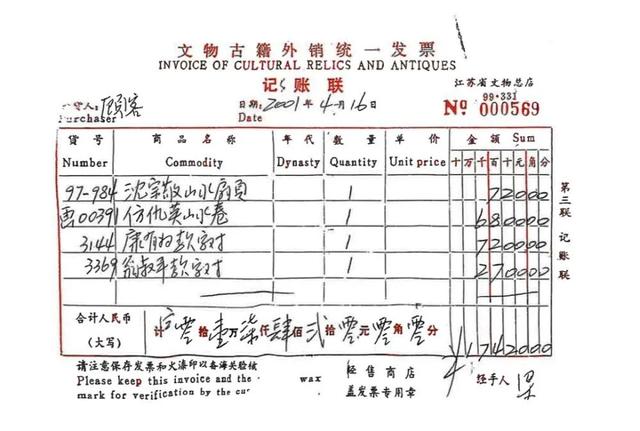 文物古籍外销统一发票
INVOICE OF CULTURAL RELICS AND ANTIQUES
记账联
江苏省文物总店
货人: 顾客
Purchaser
日期: 2001年4月16
Date
99·331
№ 000569
货号 商品名称 年代 数量 单价 金额 Sum
Number Commodity Dynasty Quantity Unit price 十万千百十元角分
97-984 沈宗敬山水扇页 1 72000
画00391 仿仇英山水卷 1 680000
3144 康有为款字对 1 720000
3369 翁叔平款字对 1 270000
第三联 记账联
合计人民币
(大写)
计 零拾壹万柒仟肆佰贰拾零元零角零分
¥1742000
请注意保存发票和火漆印以备海关验核
Please keep this invoice and the wax
mark for verification by the cus
经售商店
盖发票专用章
经手人 梁